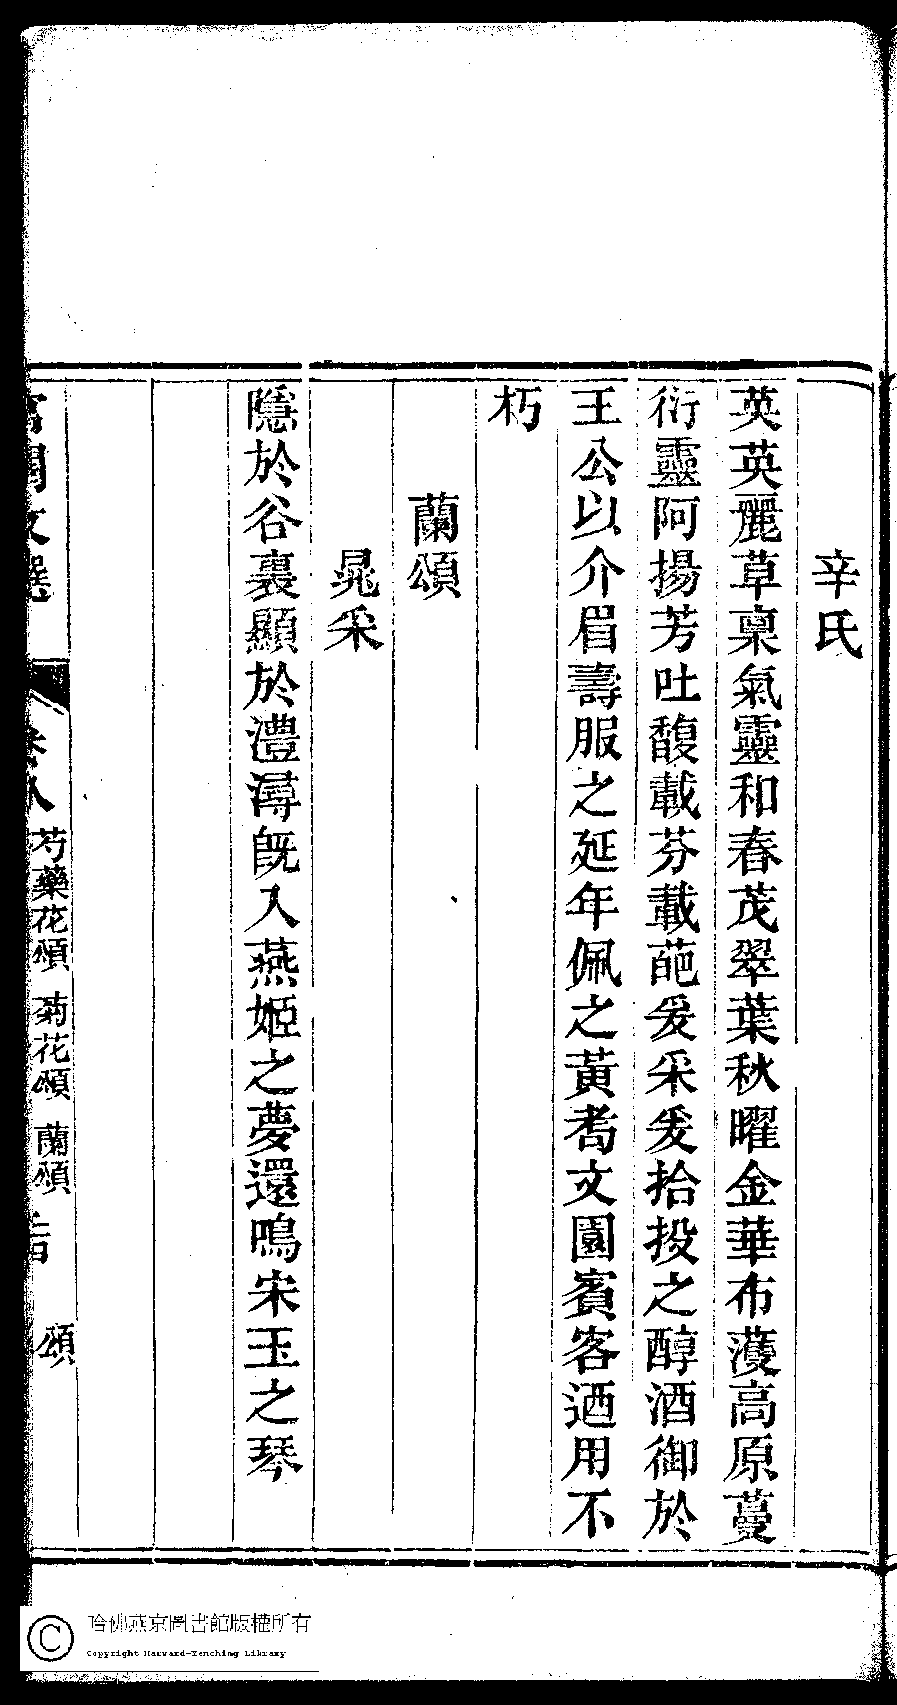 辛氏
英英麗草稟氣靈和春茂翠葉秋曜金華布濩高原蔓
衍靈阿揚芳吐馥載芬載葩爰采爰拾投之醇酒御於
王公以介眉壽服之延年佩之黃耇文園賓客迺用不
朽
蘭頌
晁采
隱於谷裏顯於澧潯旣入燕姬之夢還鳴宋玉之琴
宮閨文選
卷八
芍藥花頌 菊花頌 蘭頌
頌
哈佛燕京圖書館版權所有
Copyright Harvard-Yenching Library